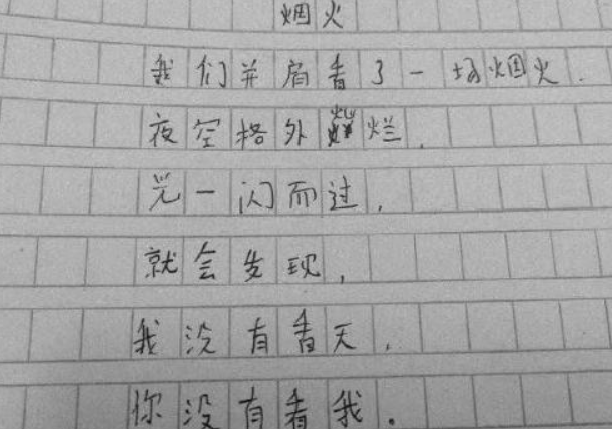 烟火
我们并肩看了一场烟火.
夜空格外灿烂.
光一闪而过,
就会发现,
我没有看天,
你没有看我.